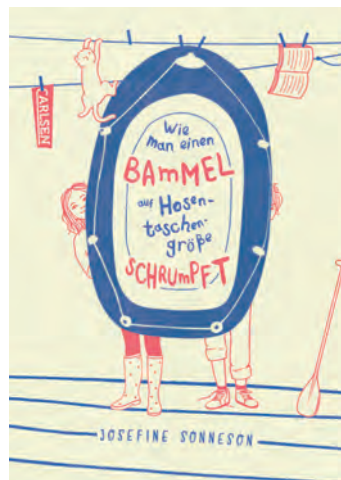 CARLSEN
Wie
man einen
BAMMEL
auf Hosen-
taschen-
größe
SCHRUMPFT
JOSEFINE SONNESON